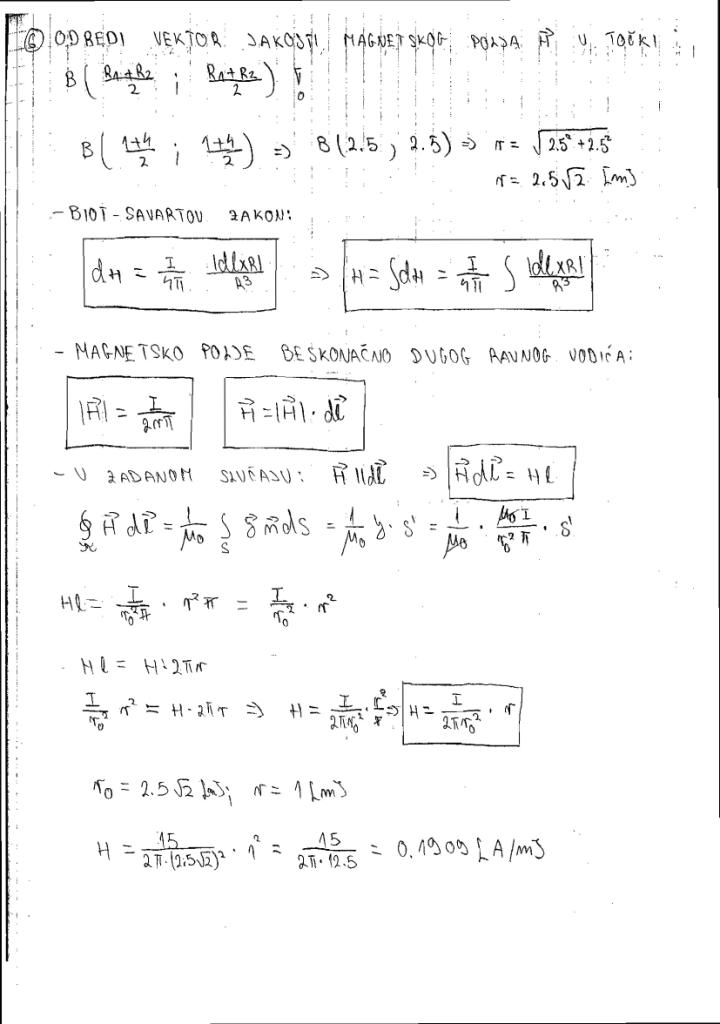 ⑥ ODREDI VEKTOR JAKOSTI MAGNETSKOG POLJA H⃗ U TOČKI :
B( (R1+R2)/2 ; (R1+R2)/2 ) !
B( (1+4)/2 ; (1+4)/2 ) => B(2.5 , 2.5) => r = √(2.5²+2.5²)
r = 2.5√2 [m]
- BIOT-SAVARTOV ZAKON:
dH = I/4π |dl×R|/R³ => H = ∫dH = I/4π ∫ |dl×R|/R³
- MAGNETSKO POLJE BESKONAČNO DUGOG RAVNOG VODIČA:
|H⃗| = I/2rπ H⃗ = |H⃗| · dl⃗
- U ZADANOM SLUČAJU: H⃗ || dl⃗ => H⃗ dl⃗ = Hl
∮ H⃗ dl⃗ = 1/μ0 ∫S n⃗ dS = 1/μ0 · S' = 1/μ0 · μ0 I/r0²π · S'
Hl = I/r0²π · r²π = I/r0² · r²
Hl = H·2πr
I/r0² r² = H·2πr => H = I/2πr0² · r²/r => H = I/2πr0² · r
r0 = 2.5√2 [m]; r = 1 [m]
H = 15/2π·(2.5√2)² · 1² = 15/2π·12.5 = 0.1909 [A/m]